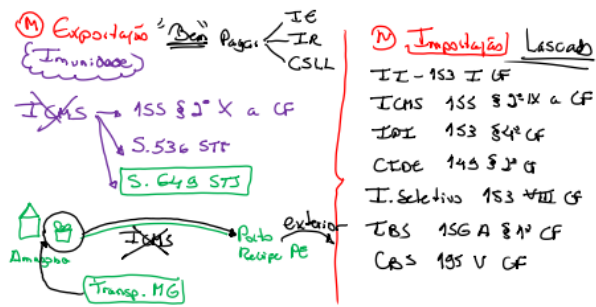 M Exportação "Bem" Pagar IE
IR
CSLL
Imunidade
ICMS → 155 § 2º X a CF
S. 536 STF
S. 649 STJ
Amazona
ICMS
Porto
Recife PE
exterior
Transp. MG
N Importação Lascado
II - 153 I CF
ICMS 155 § 2º IX a CF
IPI 153 § 4º CF
CIDE 149 § 2º CF
I. Seletivo 153 VIII CF
IBS 156 A § 1º CF
CBS 195 V CF